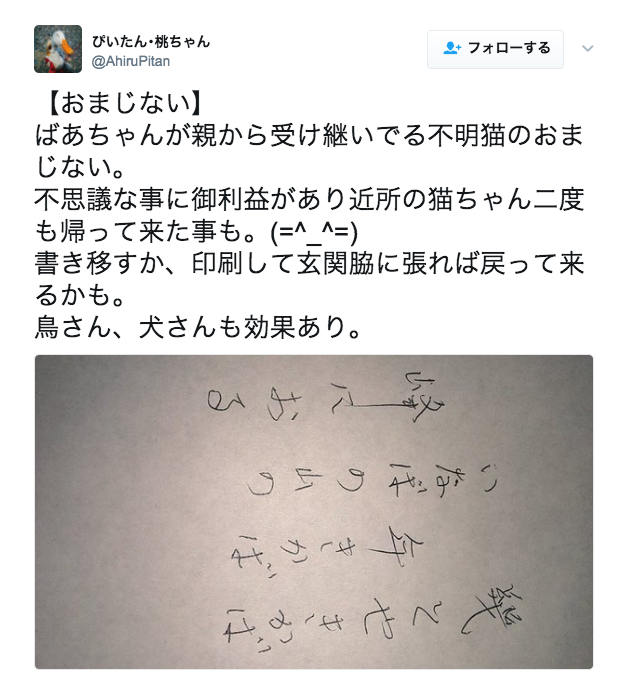 ぴいたん・桃ちゃん
@AhiruPitan
フォローする
【おまじない】
ばあちゃんが親から受け継いでる不明猫のおま
じない。
不思議な事に御利益があり近所の猫ちゃん二度
も帰って来た事も。(=^_^=)
書き移すか、印刷して玄関脇に張れば戻って来
るかも。
鳥さん、犬さんも効果あり。
幾とやきかば
年きかば
いなばの山の
峰におる